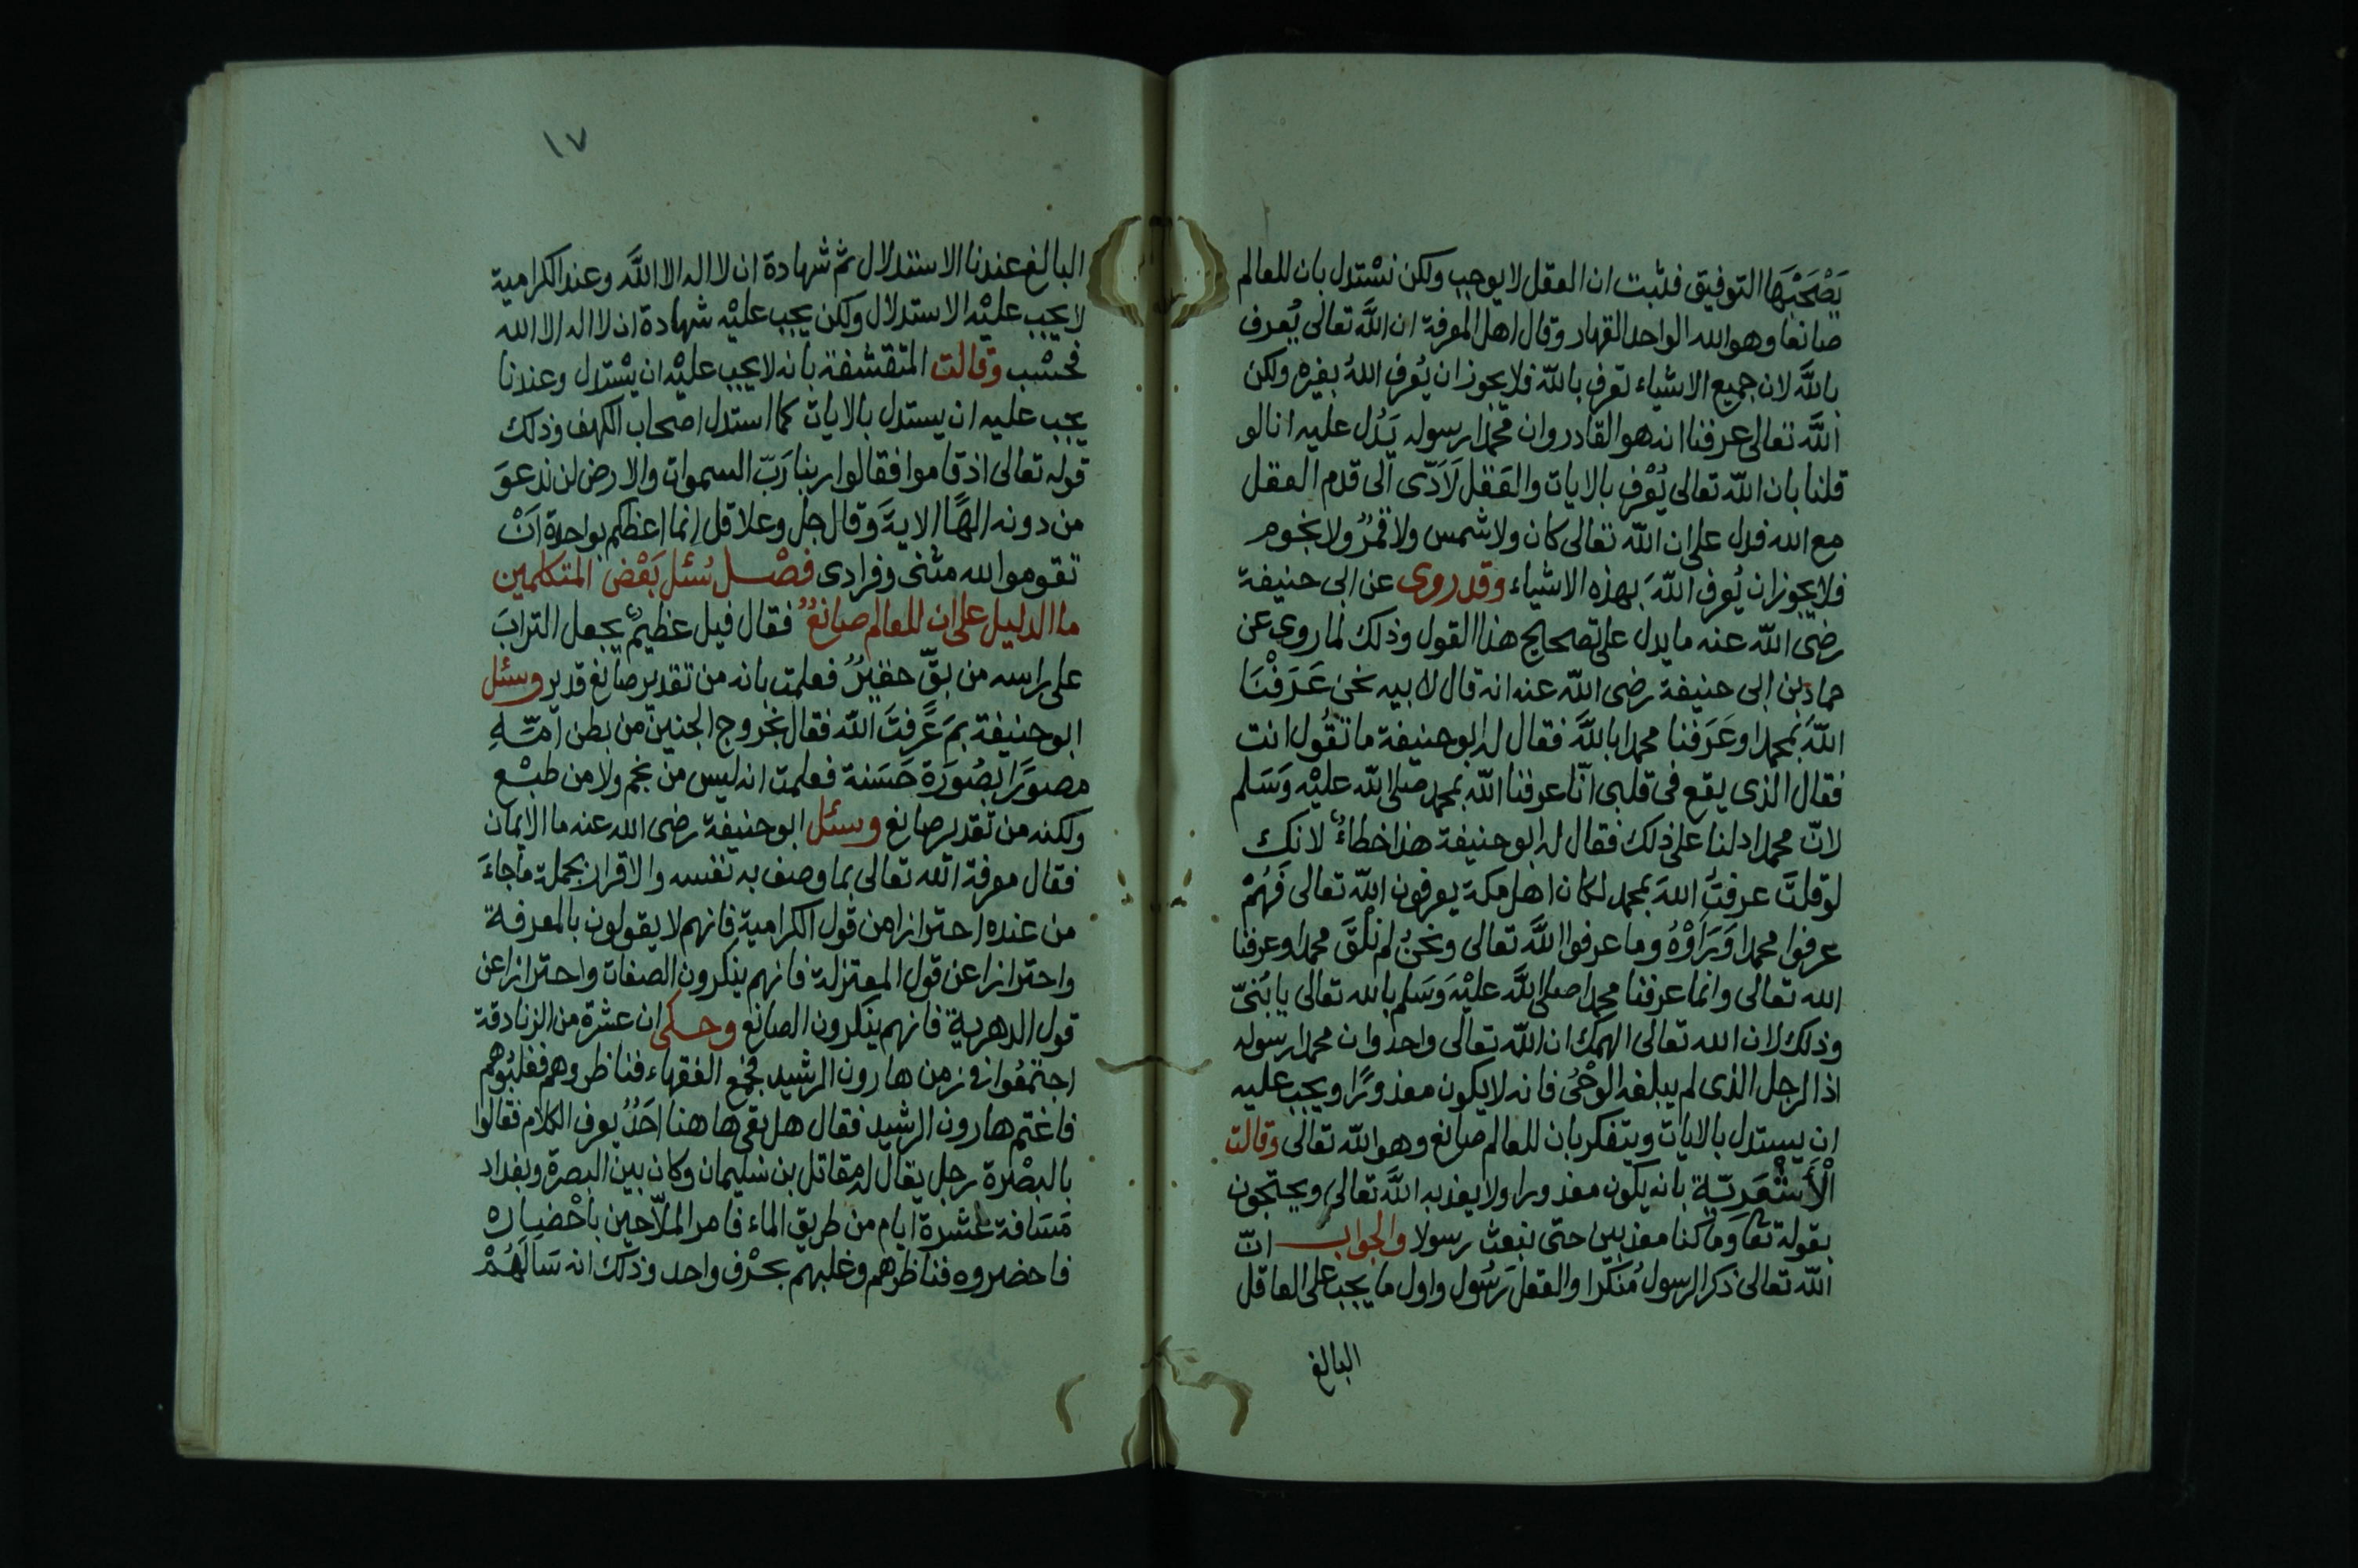 يَصْحَبْهَا التوفيق فثبت ان العقل لا يوجب ولكن نسْتدل بان للعالم
صانعا وهو الله الواحد القهار وقال اهل المعرفة ان اللَّه تعالى يُعرف
باللَّه لان جميع الاشياء تعرف باللّه فلا يجوز ان يُعرف اللهُ بغيره ولكن
اللَّه تعالى عرفنا انه هو القادر وان محمدا رسوله يَدُل عليه انا لو
قلنا بان اللّه تعالى يُعْرف بالايات والعَقل لَاَدّى الى قدم العقل
مع الله فدل على ان اللّه تعالى كان ولا شمس ولا قمرٌ ولا نجوم
فلا يجوز ان يُعرف اللّهَ بهذه الاشياء وقد روى عن ابى حنيفة
رضى اللّه عنه ما يدل على تصحيح هذا القول وذلك لما روى عن
حماد بن ابى حنيفة رضى اللّه عنه انه قال لابيه نحن عَرَفْنَا
اللّهَ بمحمد او عَرَفنا محمدا باللَّه فقال له ابو حنيفة ما تقُول انت
فقال الذى يقع فى قلبى انّا عرفنا اللّه بمحمد صلى اللّه عليْه وَسَلم
لانّ محمدا دلنا على ذلك فقال له ابو حنيفة هذا خطاءٌ لانك
لو قلتَ عرفتُ اللهَ بمحمد لكان اهل مكة يعرفون اللّه تعالى فَهُمْ
عرفوا محمدا وَرَاَوْهُ وما عرفوا اللَّه تعالى ونحنُ لم نلْقَ محمدا وعرفنا
الله تعالى وانما عرفنا محمدا صلى اللَّه عليْه وَسَلم بالله تعالى يا بُنىّ
وذلك لان الله تعالى الهمك ان اللّه تعالى واحد وان محمدا رسوله
اذا الرجل الذى لم يبلغه الوحْىُ فانه لا يكون معذورًا ويجب عليه
ان يستدل بالايات ويتفكر بان للعالم صانع وهو اللّه تعالى وقالت
الْاَشْعَريّة بانه يكون معذورا ولا يعذبه اللَّه تعالى ويحتجون
بقوله تعا وَما كنا معذبين حتى نبعث رسولا والجواب انّ
اللّه تعالى ذكر الرسول مُنَكّرا والعقل رَسُول واول ما يجب على العاقل
البالغ
١٧
البالغ عندنا الاستدلال ثم شهادة ان لا اله الا اللَّه وعند الكرامية
لا يجب عليْه الاستدلال ولكن يجب عليْه شهادة ان لا اله الا الله
فحسْب وقالت المتقشفة بانه لا يجب عليْه ان يسْتدل وعندنا
يجب عليه ان يستدل بالايات كما استدل اصحاب الكهف وذلك
قوله تعالى اذ قاموا فقالوا ربنا رَبّ السموات والارض لن ندعوَ
من دونه الهًا الاية وَقال جل وعلا قل انما اعظكم بواحدة اَنْ
تقوموا لله مثنى وفرادى فصْل سُئل بَعْض المتكلمين
ما الدليل على ان للعالم صانعٌ فقال فيل عظيمٌ يجعل الترابَ
على راسه من بقّ حقيرٌ فعلمت بانه من تقدير صانع قدير وسئل
ابو حنيفة بمَ عَرفتَ اللّه فقال بخروج الجنين من بطن امّهِ
مصورًا بصُورَة حَسَنة فعلمت انه ليس من نجم ولا من طبْع
ولكنه من تقدير صانع وسئل ابو حنيفة رضى الله عنه ما الايمان
فقال معرفة الله تعالى بما وصف به نفسه والاقرار بجملة ما جاءَ
من عنده احترازا من قول الكرامية فانهم لا يقولون بالمعرفة
واحترازا عن قول المعتزلة فانهم ينكرون الصفات واحترازا عن
قول الدهرية فانهم ينكرون الصانع وحكى ان عشرة من الزنادقة
اجتمعُوا فى زمن هارون الرشيد فجمع الفقهاء فناظروهم فغلبُوهم
فاغتم هارون الرشيد فقال هل بقى ها هنا احَدٌ يعرف الكلام فقالوا
بالبصْرة رجل يقال له مقاتل بن سُليمان وكان بين البصرة وبغداد
مَسَافة عشرة ايام من طريق الماء فامر الملّاحين باحْضاره
فاحضروه فناظرهم وغلبهم بحرْف واحد وذلك انه سَالَهُمْ